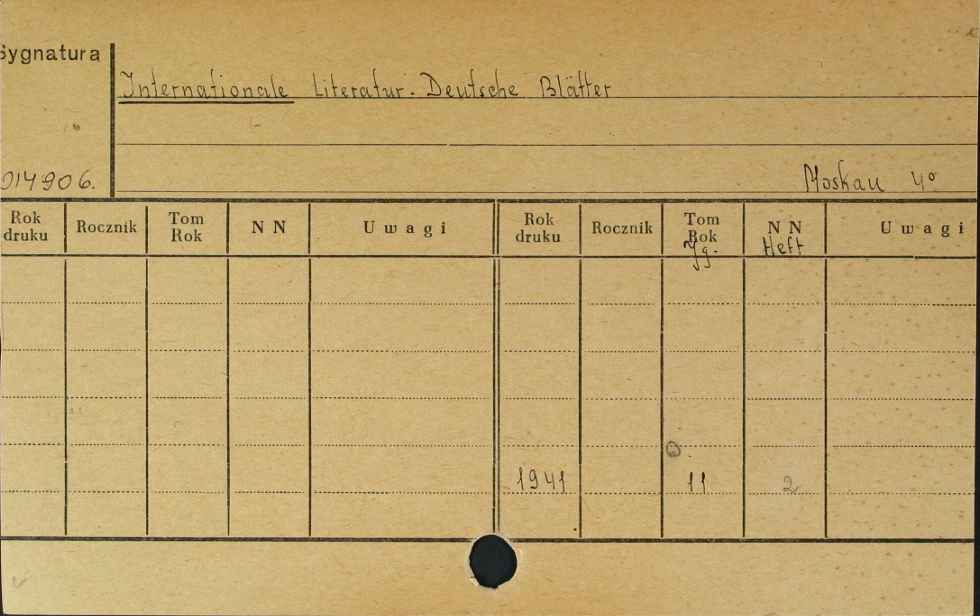 Sygnatura
Internationale Literatur. Deutsche Blätter
014906.
Moskau 4°
Rok druku Rocznik Tom Rok N N Uwagi Rok druku Rocznik Tom Rok N N Uwagi
Jg. Heft
1941 11 2